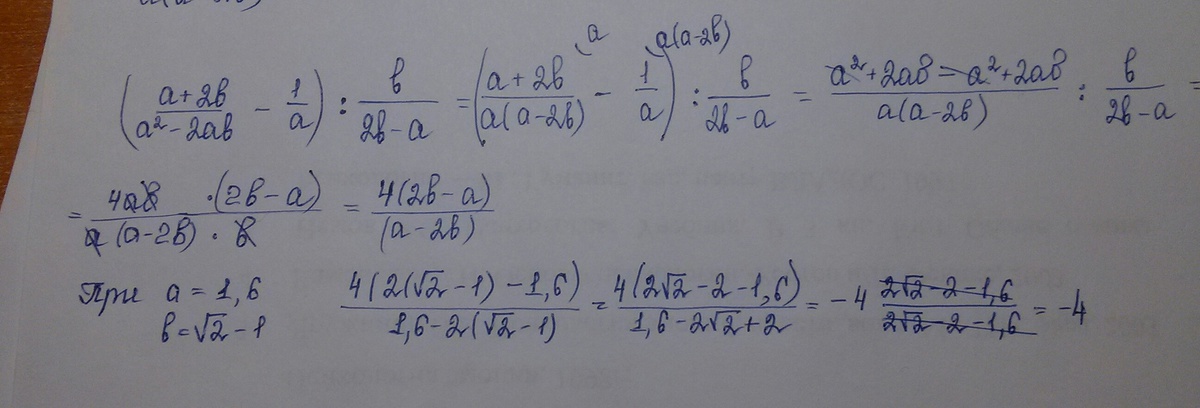 a a(a-2b)
(a+2b/a²-2ab - 1/a) : b/2b-a = (a+2b/a(a-2b) - 1/a) : b/2b-a = a²+2ab-a²+2ab/a(a-2b) : b/2b-a =
= 4ab·(2b-a)/a(a-2b)·b = 4(2b-a)/(a-2b)
При a=1,6 4(2(√2-1)-1,6)/1,6-2(√2-1) = 4(2√2-2-1,6)/1,6-2√2+2 = -4 2√2-2-1,6/2√2-2-1,6 = -4
b=√2-1